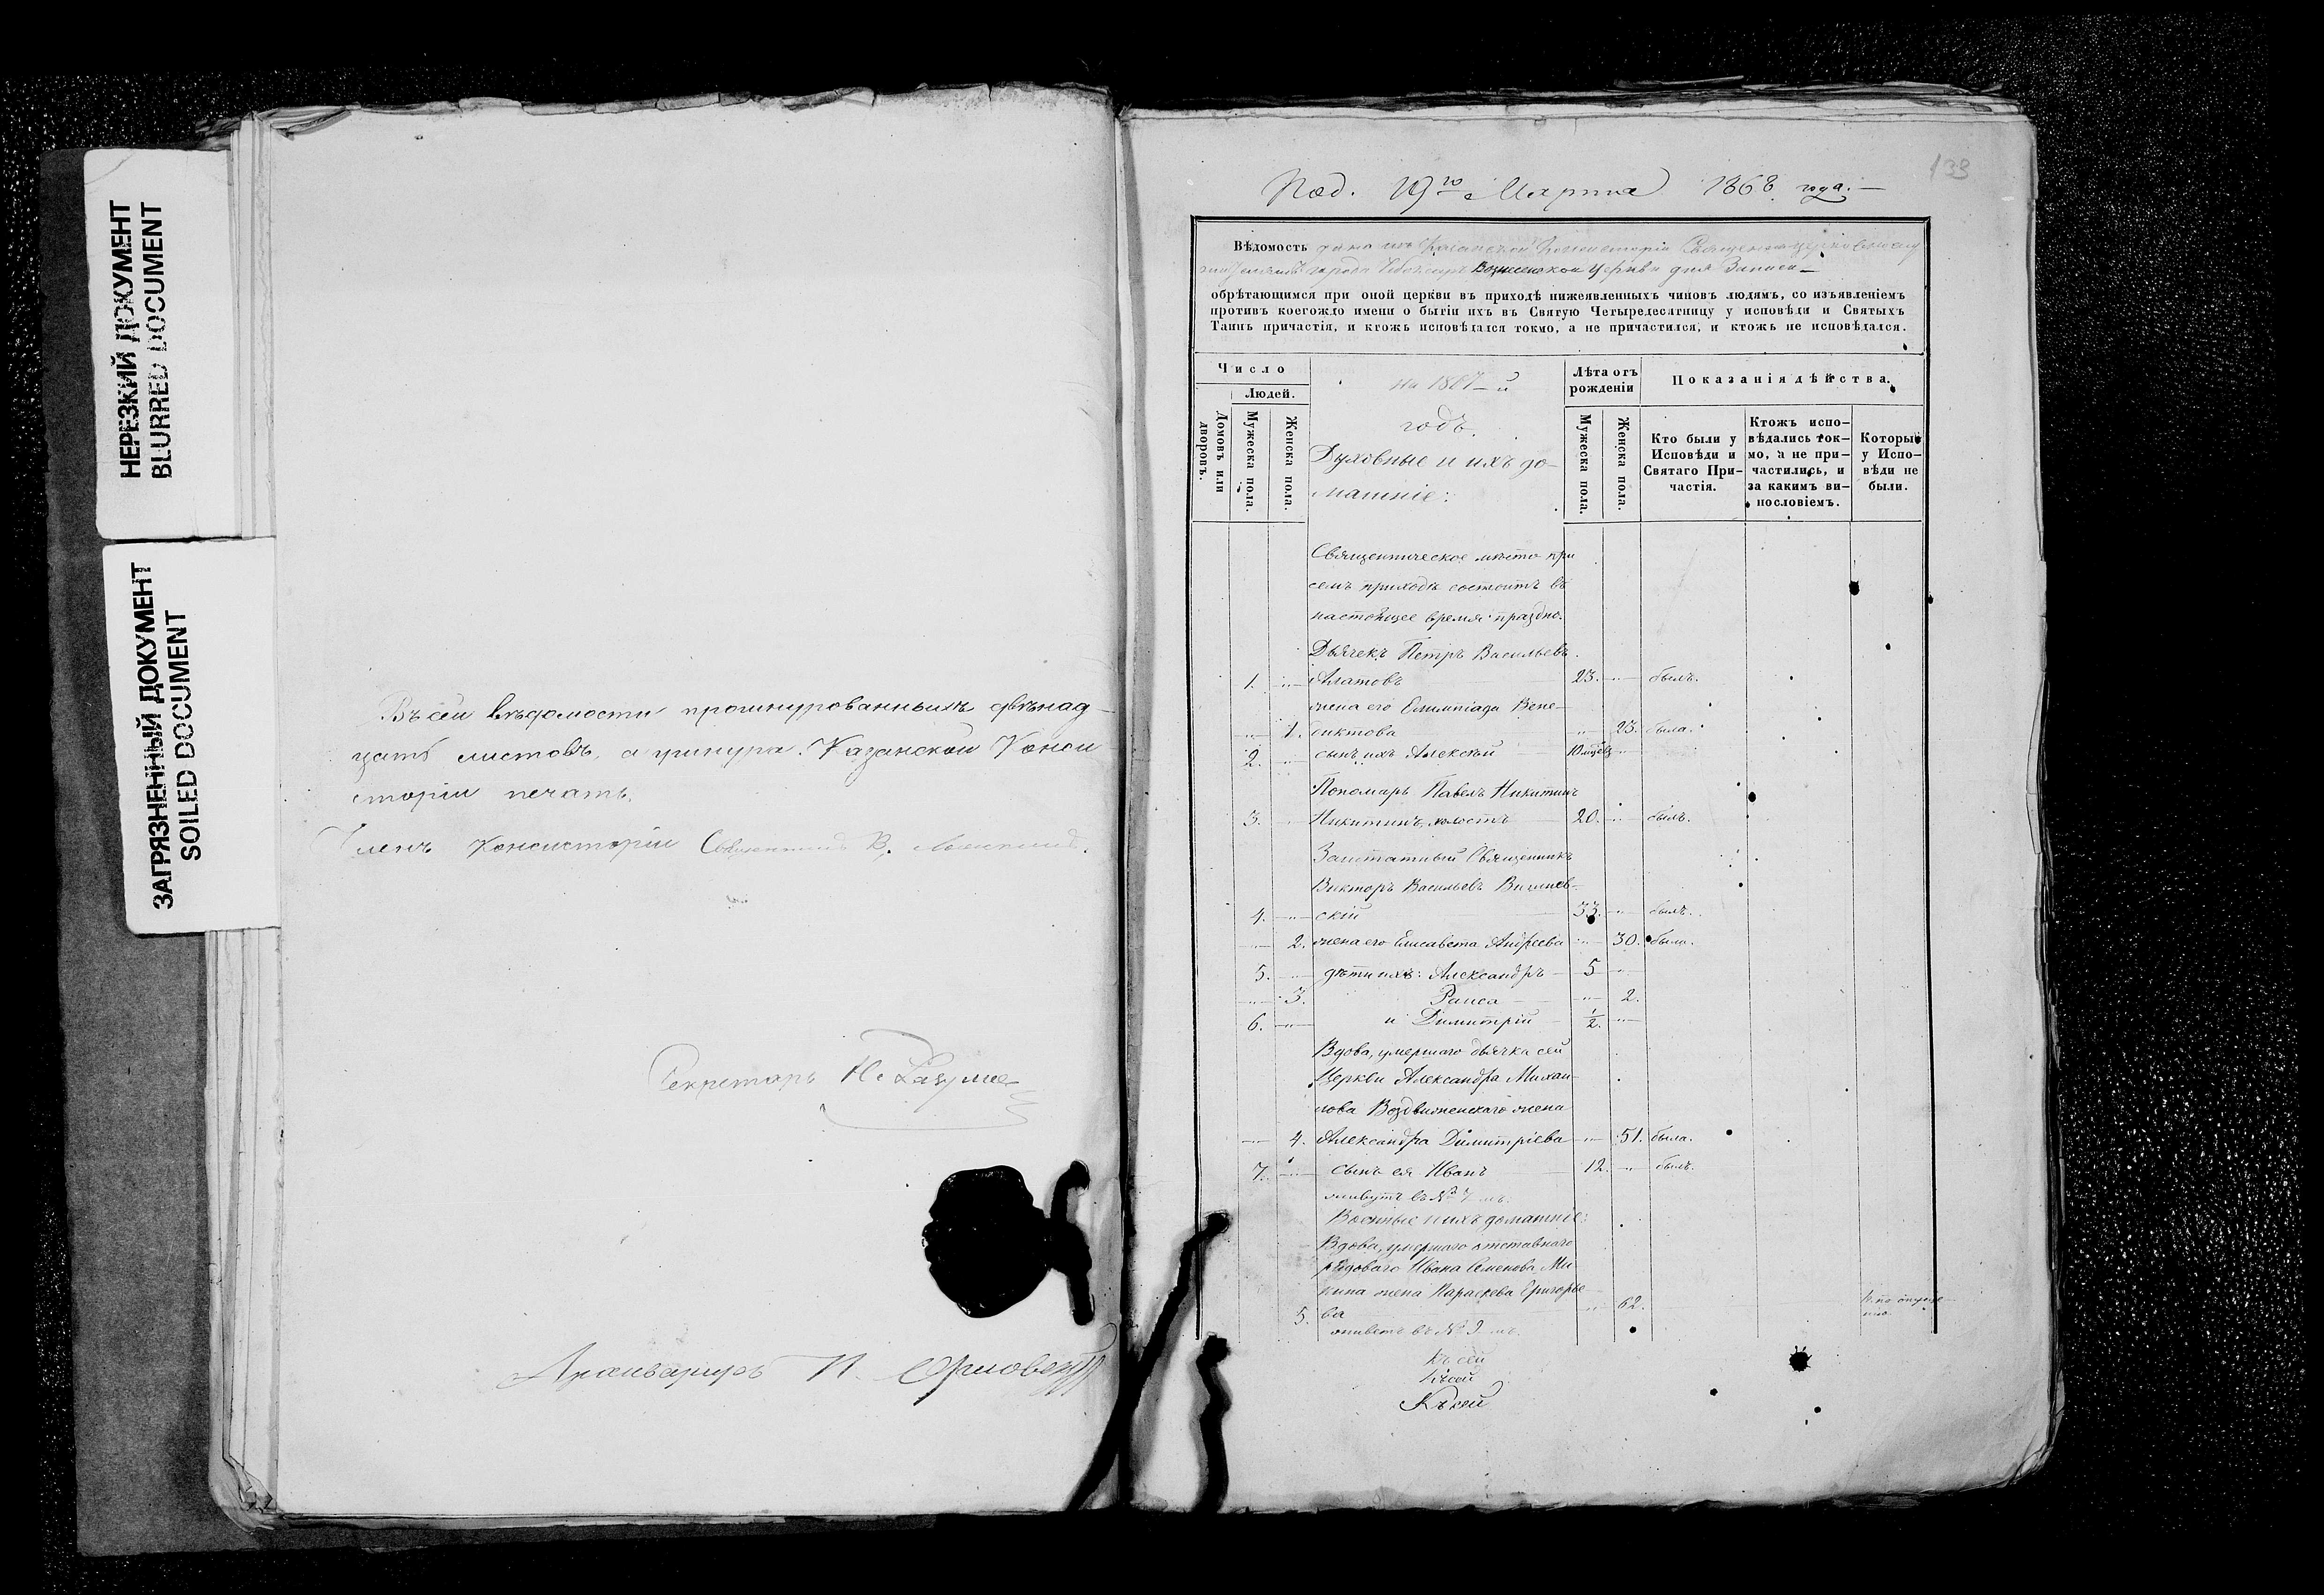 НЕРЕЗКИЙ ДОКУМЕНТ
BLURRED DOCUMENT
ЗАГРЯЗНЕННЫЙ ДОКУМЕНТ
SOILED DOCUMENT
Въ сей вѣдомости прошнурованныхъ двѣнад-
цать листовъ, а у шнура Казанской Конси
сторіи печать.
Членъ Консисторіи Священникъ В.
Секретарь Н.
133
Под. 19го Марта 1868 года.
Вѣдомость дана изъ Казанской Консисторіи Священно-церковно
города Чебоксаръ Вознесенской церкви для Записи
обрѣтающимся при оной церкви въ приходѣ нижеявленныхъ чиновъ людямъ, со изъявленіемъ
противъ коегождо имени о бытіи ихъ въ Святую Четыредесятницу у исповѣди и Святыхъ
Таинъ причастія, и ктожъ исповѣдался токмо, а не причастился, и ктожъ не исповѣдался.
Число
Людей.
Домовъ или дворовъ.
Мужеска пола.
Женска пола.
на 1867-й
годъ.
Духовные и ихъ до-
машніе:
Лѣта отъ
рожденія
Мужеска пола.
Женска пола.
Показанія дѣйства.
Кто были у
Исповѣди и
Святаго При-
частія.
Ктожъ испо-
вѣдались ток-
мо, а не при-
частились, и
за какимъ ви-
нословіемъ.
Которые
у Испо-
вѣди не
были.
Священническое мѣсто при
семъ приходѣ состоитъ въ
настоящее время праздно.
Дьячекъ Петръ Васильевъ
1. Алатовъ 23. былъ.
жена его Олимпіада Вене-
1. диктова 23. была.
2. сынъ ихъ Алексѣй
Пономарь Павелъ Никитинъ
3. Никитинъ, холостъ 20. былъ.
Заштатный Священникъ
Викторъ Васильевъ Вишнев-
4. скій 33. былъ.
2. жена его Елисавета Андреева 30. была.
5. дѣти ихъ: Александръ 5
3. Раиса 2.
6. и Димитрій 1/2.
Вдова, умершаго дьячка сей
Церкви Александра Михаи-
лова Воздвиженскаго жена
4. Александра Димитріева 51. была.
7. сынъ ея Иванъ 12. былъ.
живутъ въ № 7 мъ.
Военные и ихъ домашніе:
Вдова, умершаго отставнаго
рядоваго Ивана Семенова Ми
нина жена Параскева Григорье
5. ва 62. по опуще
нію.
живетъ въ № 9 мъ.
Къ сей
Къ сей
Къ сей